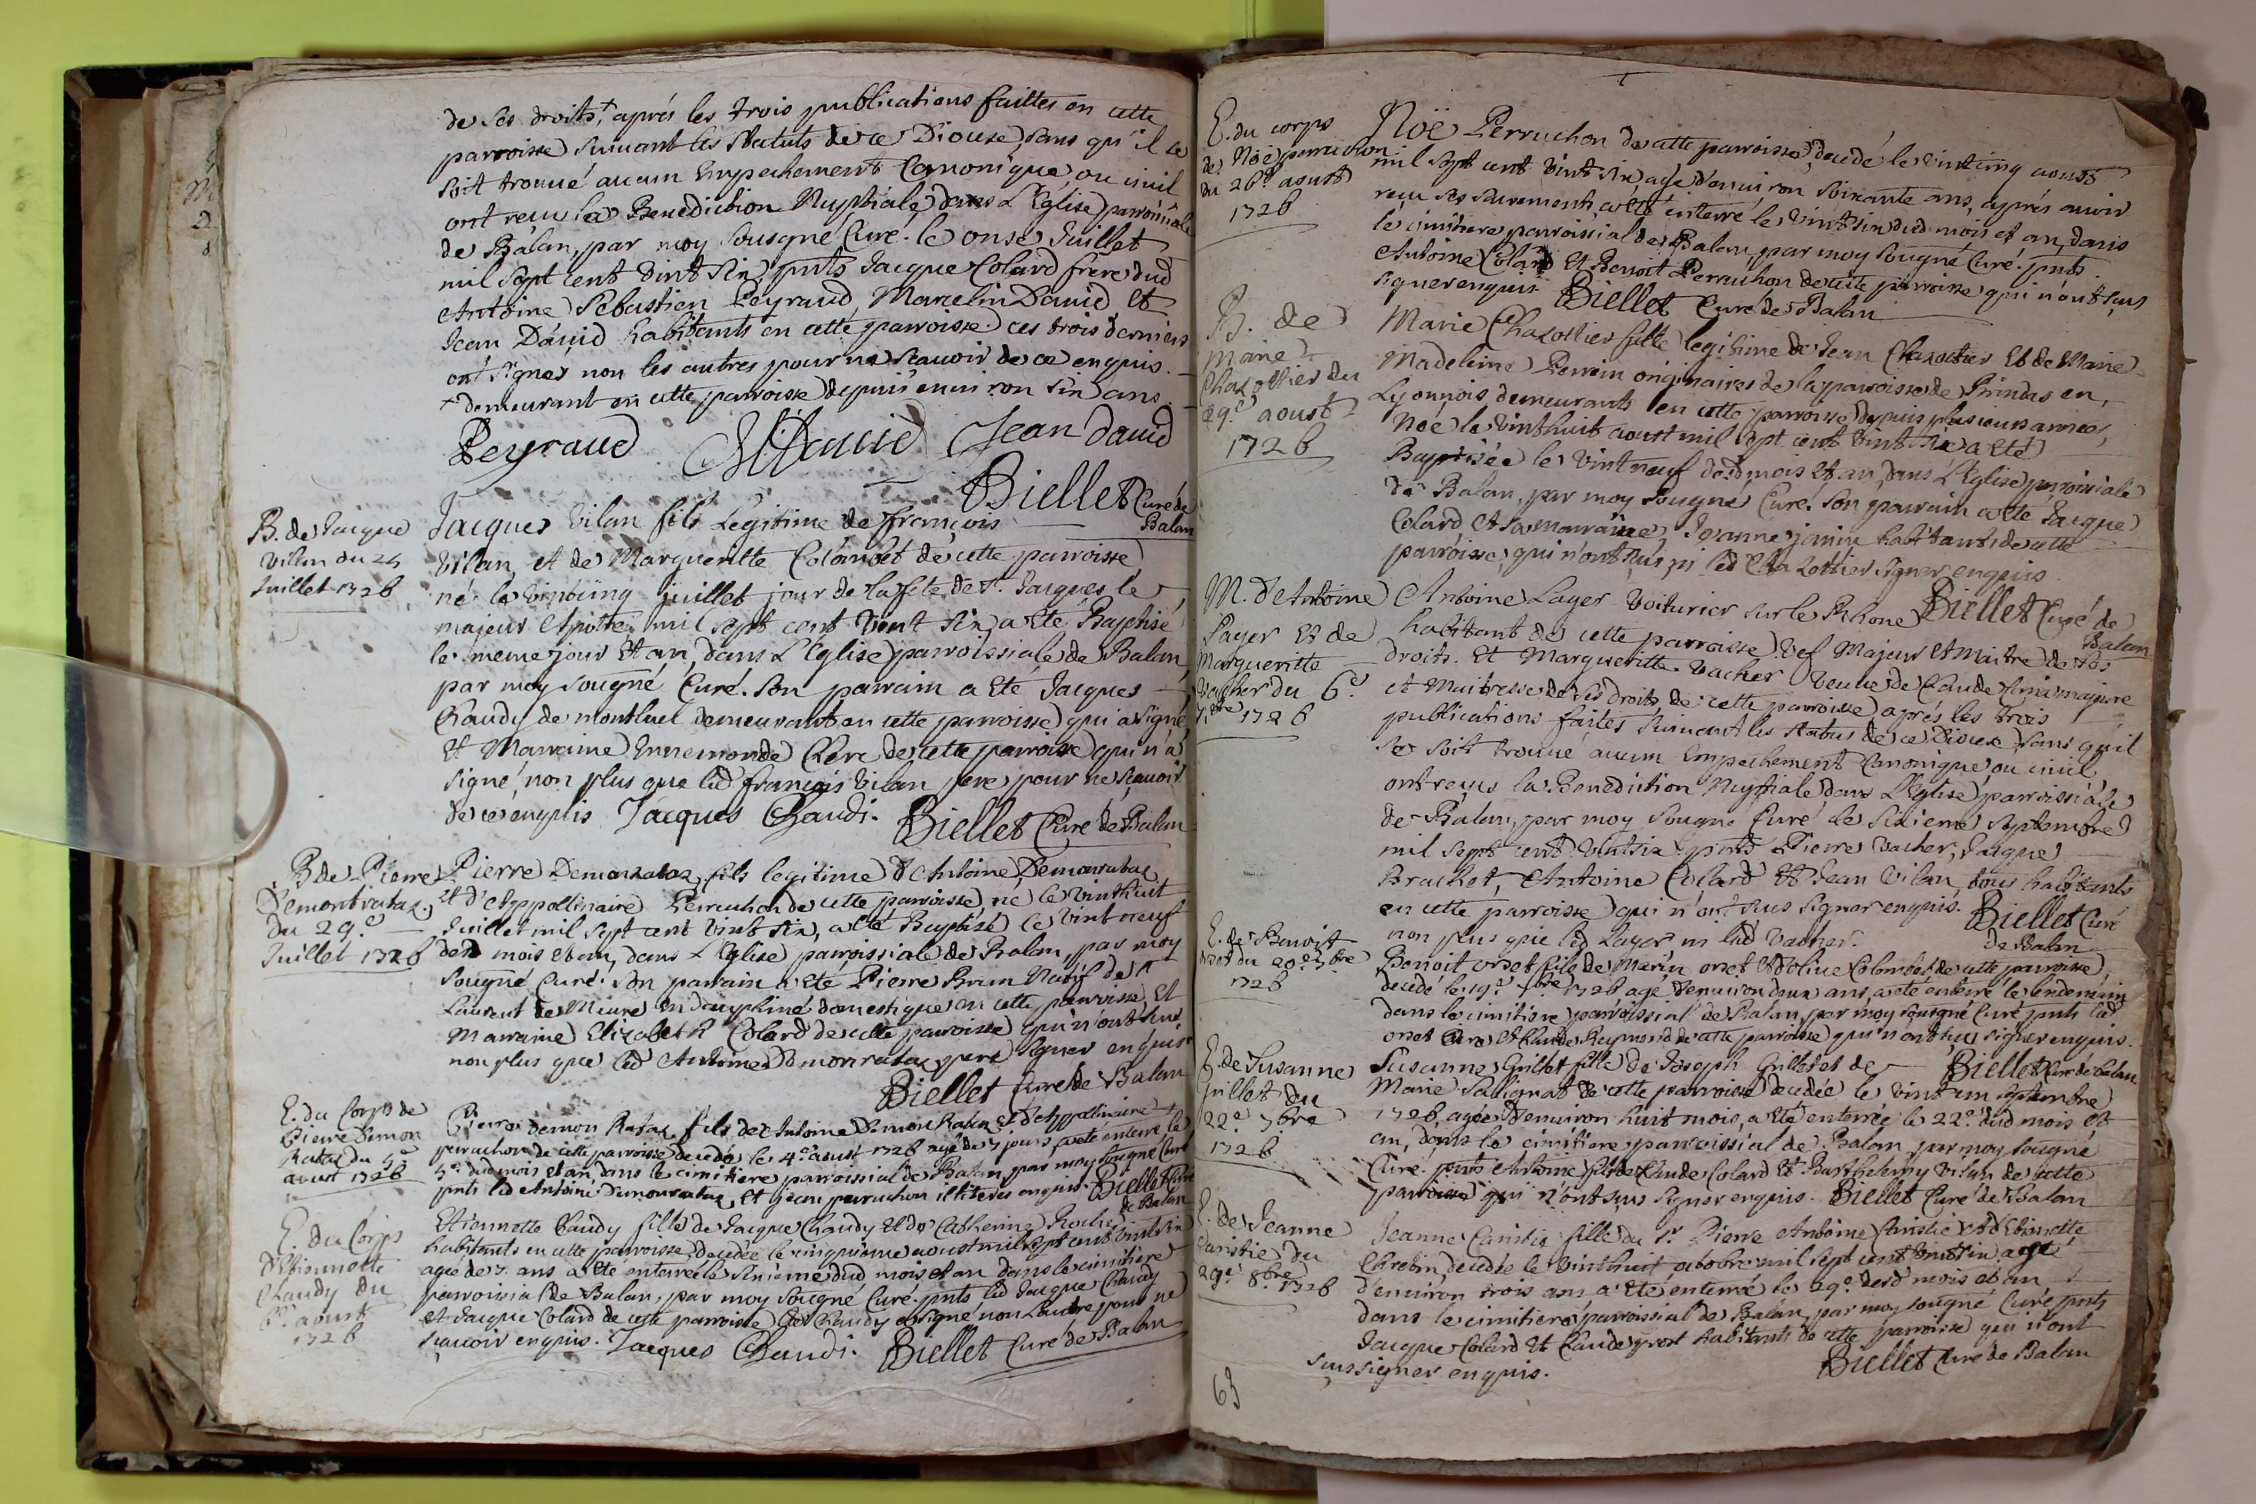 de ses droits,+ aprés les trois publications faittes en cette
parroisse suivant les Statuts de ce Diocese, sans qu'il se
soit trouué aucun Empechement Canonique ou ciuil
ont reçu la Benediction Nuptiale, dans L'Eglise parroissiale
de Balan, par moy sousigné Curé. le onze Juillet
mil sept cent vint six, pnts Jacque Colard frere dud
Antoine, Sebastien Peyraud, Marcelin Dauid Et
Jean Dauid habitants en cette parroisse. ces trois derniers
ont signer non les autres pour ne scauoir de ce enquis.
+ demeurant en cette parroisse depuis enuiron six ans.
Peyraud MDauid Jean dauid
Biellet Curé de
Balan
B. de Jacque
Vilan du 25
Juillet 1726
Jacques Vilan fils Legitime de françois
Vilan et de Margueritte Colombet de cette parroisse
né le vintcinq juillet jour de la fete de St. Jacques le
majeur Apôtre, mil sept cent vint six, a Eté Baptisé
le meme jour Et an, dans L'Eglise parroissiale de Balan,
par moy sougné Curé. Son parrain a Eté Jacques
Chaudy de montluel demeurant en cette parroisse qui a signé
Et Marraine Ennemonde Clere de cette parroisse qui n'a
signé, non plus que led françois Vilan pere pour ne scauoir
de ce enquis Jacques Chaudi. Biellet Curé de Balan
B de Pierre
Demontrataz,
du 29.e
Juillet 1726
Pierre Demonrataz, fils legitime d'Antoine Demonrataz
Et d'Appollinaire Perruchon de cette parroisse, né le vinthuit
Juillet mil sept cent vint six, a Eté Baptisé le vintneuf
desd mois Et an, dans L'Eglise parroissiale de Balan, par moy
sougné Curé. Son parrain a Eté Pierre Brun Natif de St
Laurent de Miure en Dauphiné domestique en cette parroisse, Et
Marraine Elizabeth Colard de cette parroisse qui n'ont sus,
non plus que led Antoine Demonrataz pere signer enquis.
Biellet Curé de Balan
E. du Corps de
Pierre Demon
Rataz du 5.e
aoust 1726
Pierre Demon Rataz fils de Antoine Demon Rataz Et d'Appollinaire
peruchon de cette parroisse decedé le 4.e aoust 1726 agé de 7 jours, a eté enterré le
5.e dud mois Et an, dans le cimitiere parroissial de Balan, par moy sougné Curé
pnts led Antoine Demonrataz Et Jean peruchon illiteres enquis. Biellet Curé
de Balan
E. du Corps
d'Etiennette
Chaudy du
6.e aoust
1726
Etiennette Chaudy fille de Jacque Chaudy Et de Catherine Roche
habitants en cette parroisse, decedée le cinquieme aoust mil sept cent vint six
agée de 7. ans a Eté enterrée le sixieme dud mois et an dans le cimitiere
parroissial de Balan, par moy sougné Curé. pnts led Jacque Chaudy
et Jacque Colard de cette parroisse led Chaudy a signé non L'autre pour ne
scauoir enquis. Jacques Chaudi. Biellet Curé de Balan
E. du corps
de Noë perruchon
du 26e aoust
1726
Noë Perruchon de cette parroisse, decedé le vintcinq aoust
mil sept cent vint six, agé d'enuiron soixante ans, aprés auoir
reçu ses sacrements, a eté enterré le vintsix dud. mois et an, dans
le cimitiere parroissial de Balan, par moy sougné Curé. pnts.
Antoine Colard Et Benoit Perruchon de cette parroisse qui n'ont sus
signer enquis Biellet Curé de Balan
B. de
Marie
Chazottier du
29.e aoust
1726
Marie Chazottier fille legitime de Jean Chazottier Et de Marie
Madeleine Perrin originaires de la parroisse de Brindas en
Lyonnois demeurants en cette parroisse depuis plusieurs années,
Née le vinthuit aoust mil sept cent vint six a Eté
Baptisée le vint neuf desd mois Et an, dans L'Eglise parroissiale
de Balan, par moy sougné Curé. Son parrain a Eté Jacque
Colard Et sa marraine, Jeanne janin habitants de cette
parroisse, qui n'ont sus, ni led Chazottier signer enquis.
Biellet Curé de
Balan
M. d'Antoine
Layer Et de
Margueritte
Vacher du 6.e
7.bre 1726
Antoine Layer Voiturier sur le Rhone
habitant de cette parroisse vef Majeur Et Maitre de ses
droits. Et Margueritte Vacher Veuue de Claude majeure
et Maitresse de ses droits, de cette parroisse, aprés les trois
publications faites suiuant les statuts de ce Diocese, sans qu'il
se soit trouué aucun Empechement Canonique ou ciuil
ont reçus la Benediction Nuptiale dans L'Eglise parroissiale
de Balan, par moy sougné Curé le sixieme septembre
mil sept cent vintsix. pnts Pierre Vacher, Jacque
Brachet, Antoine Colard Et Jean Vilan, tous habitants
en cette parroisse qui n'ont sus signer enquis.
non plus que led Layer ni lad Vacher. Biellet Curé
de Balan
E. de Benoit
orset du 20.e 7bre
1726
Benoit orset fils de Marin orset Et d'oliue Colombet de cette parroisse,
decedé le 19.e 7bre 1726 agé d'enuiron deux ans, a eté enterré le lendemain
dans le cimitiere parroissial de Balan, par moy sousigné Curé pnts led
orset Pere Et Claude Reymond de cette parroisse qui n'ont sus signer enquis.
Biellet Curé de Balan
E. de Susanne
Guillet du
22.e 7bre
1726
Susanne Guillet fille de Joseph Guillet et de
Marie Salignat de cette parroisse decedée le vint un septembre
1726, agée d'enuiron huit mois, a Eté enterrée le 22.e dud mois et
an, dans le cimitiere parroissial de Balan, par moy sougné
Curé. pnts Antoine fils de Claude Colard Et Barthelemy Vilan de cette
parroisse qui n'ont sus signer enquis. Biellet Curé de Balan
E. de Jeanne
Caristie du
29.e 8bre 1726
Jeanne Caristie fille du Sr. Pierre Antoine Caristie Et d'Etiennette
Cherbin, decedée le vinthuit octobre mil sept cent vintsix agée
d'enuiron trois ans a Eté enterrée le 29.e desd mois et an,
dans le cimitiere parroissial de Balan, par moy sougné Curé pnts
Jacque Colard Et Claude orset habitants de cette parroisse qui n'ont
sus signer enquis. Biellet Curé de Balan
63